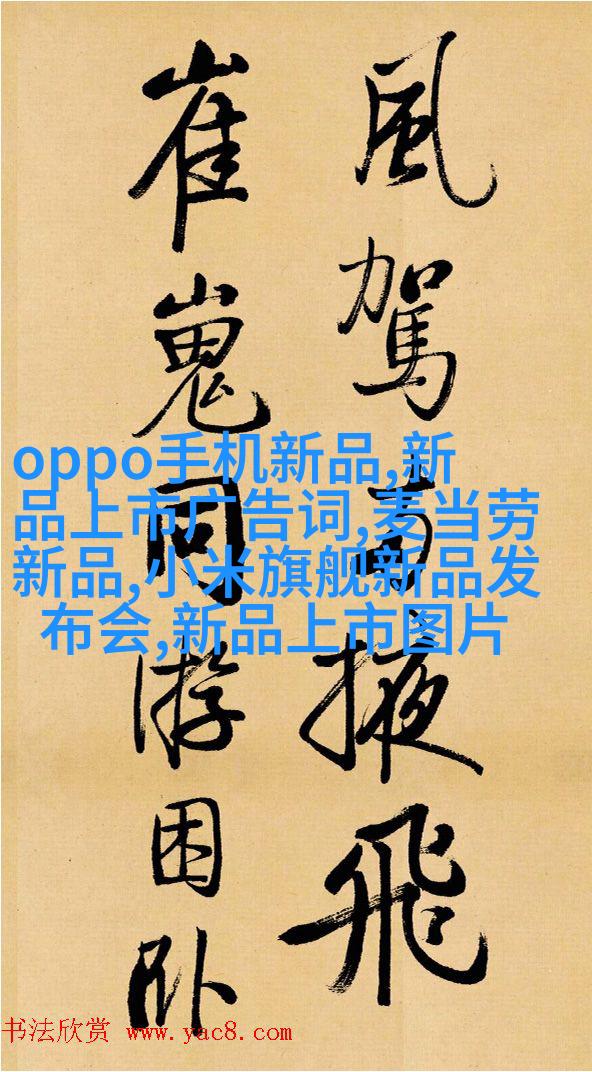 風駕掖飛
崔嵬同游困卧
oppo手机新品,新
品上市广告词,麦当劳
新品,小米旗舰新品发
布会,新品上市图片
书法欣赏 www.yac8.com